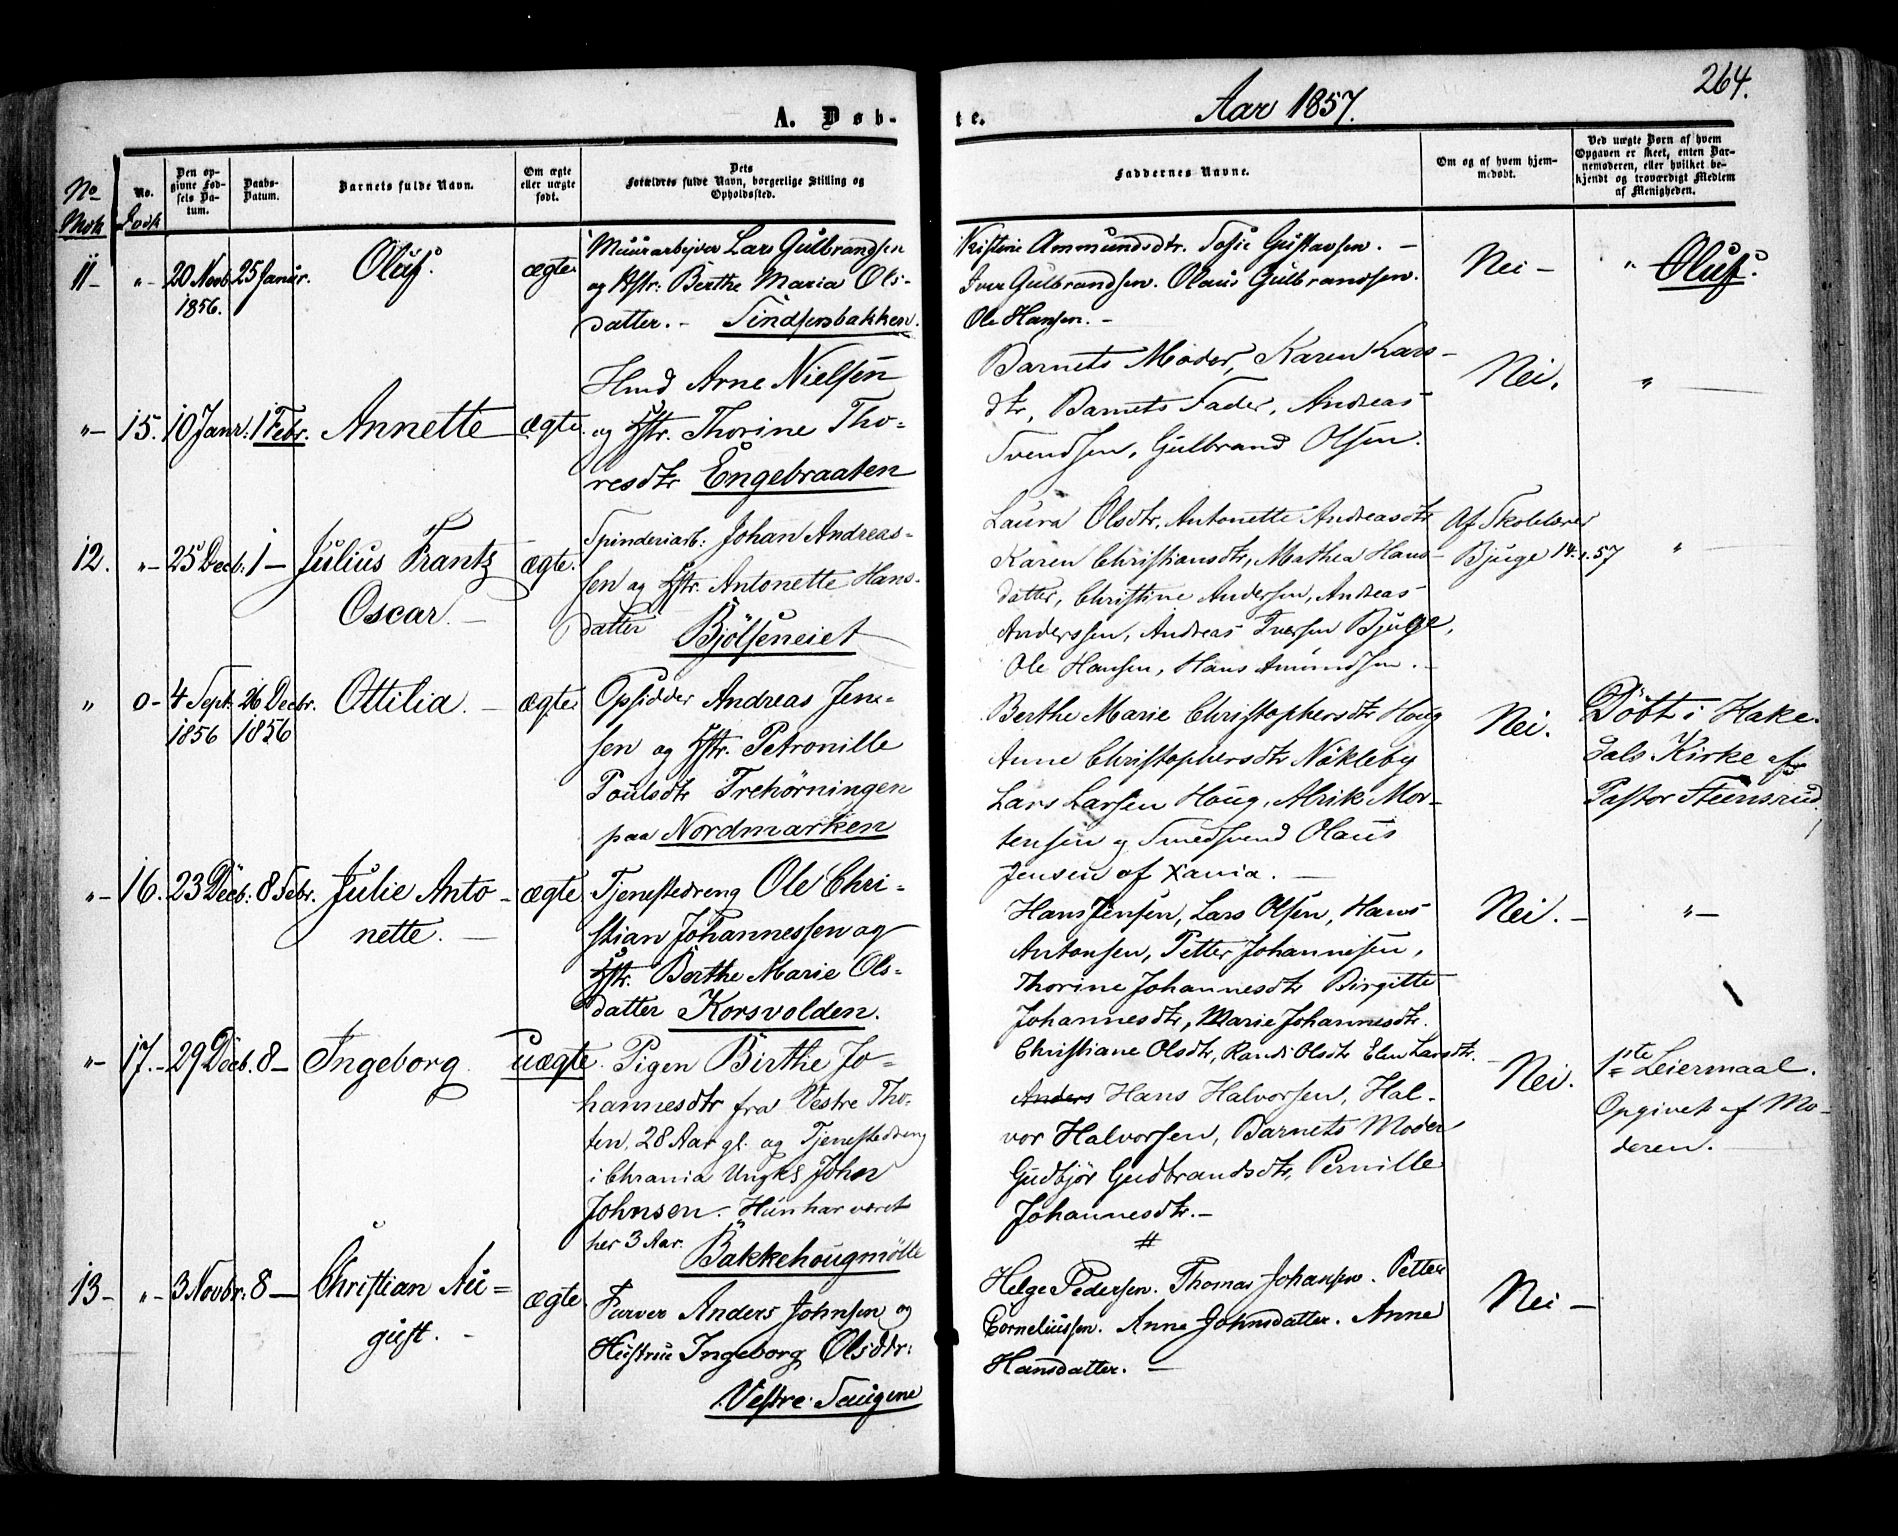 264.
A. Døb-
te.
Aar 1857.
No Msk
No. Qvdk
Den op-
givne Fød-
sels Da-
tum.
Daabs-
Datum.
Barnets fulde Navn.
Om ægte
eller uægte
født.
Dets
Forældres fulde Navn, borgerlige Stilling og
Opholdssted.
Faddernes Navne.
Om og af hvem hjem-
medøbt.
Ved uægte Børn af hvem
Opgaven er skeet, enten Bar-
nemoderen, eller hvilket be-
kjendt og troværdigt Medlem
af Menigheden.
11 - " - 20 Novb. 1856. 25 Janur. Oluf. ægte
Muurarbejder Lars Gulbrandsen
og Hstr: Berthe Maria Ols-
datter. - Tindsensbakken.
Kristine Ammundsdtr. Sofie Gustavsen. -
Iver Gulbrandsen. Olaus Gulbrandsen.
Ole Hansen. -
Nei -
" Oluf.
" - 15. 10 Janr: 1 Febr. Annette ægte.
Hmd Arne Nielsen
og Hstr. Thorine Tho-
resdtr Engebraaten
Barnets Moder, Karen Lars-
dtr, Barnets Fader, Andreas
Svendsen, Gulbrand Olsen.
Nei.
"
12. " - 25 Decb. 1 - Julius Frantz
Oscar. - ægte.
Spinderiarb: Johan Andreas-
sen og Hstr. Antonette Hans-
datter Bjølseneiet
Laura Olsdtr, Antonette Andreasdtr
Karen Christiansdtr, Mathea Hans-
datter, Christine Andersen, Andreas
Anderssen, Andreas Iversen Bjuge,
Ole Hansen, Hans Amundsen. -
Af Skolelærer
Bjuge 14. 1. 57
"
" 0 - 4 Sept. 1856 26 Decbr. 1856 Ottilia. - ægte
Opsidder Andreas Jen-
sen og Hstr. Petronille
Poulsdtr Trehörningen
paa Nordmarken
Berthe Marie Christophersdtr Houg
Anne Christophersdtr Näkleby
Lars Larsen Houg, Alrik Mor-
tensen og Smedsvend Olaus
Jensen af Xania. -
Nei.
Döbt i Hake-
dals Kirke af
Pastor Steensrud,
" - 16. 23 Decb: 8 Febr. Julie Anto-
nette. - ægte
Tjenestedreng Ole Chri-
stian Johannessen og
Hstr. Berthe Marie Ols-
datter Korsvolden.
Hans Jensen, Lars Olsen, Hans
Antonsen, Petter Johannesen,
Thorine Johannesdtr Birgitte
Johannesdtr, Marie Johannesdtr.
Nei. -
" -
" - 17. - 29 Decb. 8 - Ingeborg. uægte.
Pigen Birthe Jo-
hannesdtr fra Vestre Tho-
ten, 28 Aar gl. og Tjenestedreng
i Chrania Ungks Johan
Johnsen. - Hun har været
her 3 Aar. Bakkehougmölle
Christiane Olsdtr, Randi Olsdtr Elen Larsdtr.
Anders Hans Halvorsen, Hal-
vor Halvorsen, Barnets Moder
Gudbjör Gudbrandsdtr, Pernille
Johannesdtr. -
#
Nei.
1ste Leiermaal.
Opgivet af Mo-
deren. -
13 - " - 3 Novbr: 8 - Christian Au-
gust. - ægte
Farver Anders Johnsen og
Hustrue Ingeborg Olsdtr:
Vestre Taugene
Helge Pedersen. Thomas Johansen. Petter
Corneliussen. Anne Johnsdatter. Anne
Hansdatter. -
Nei -